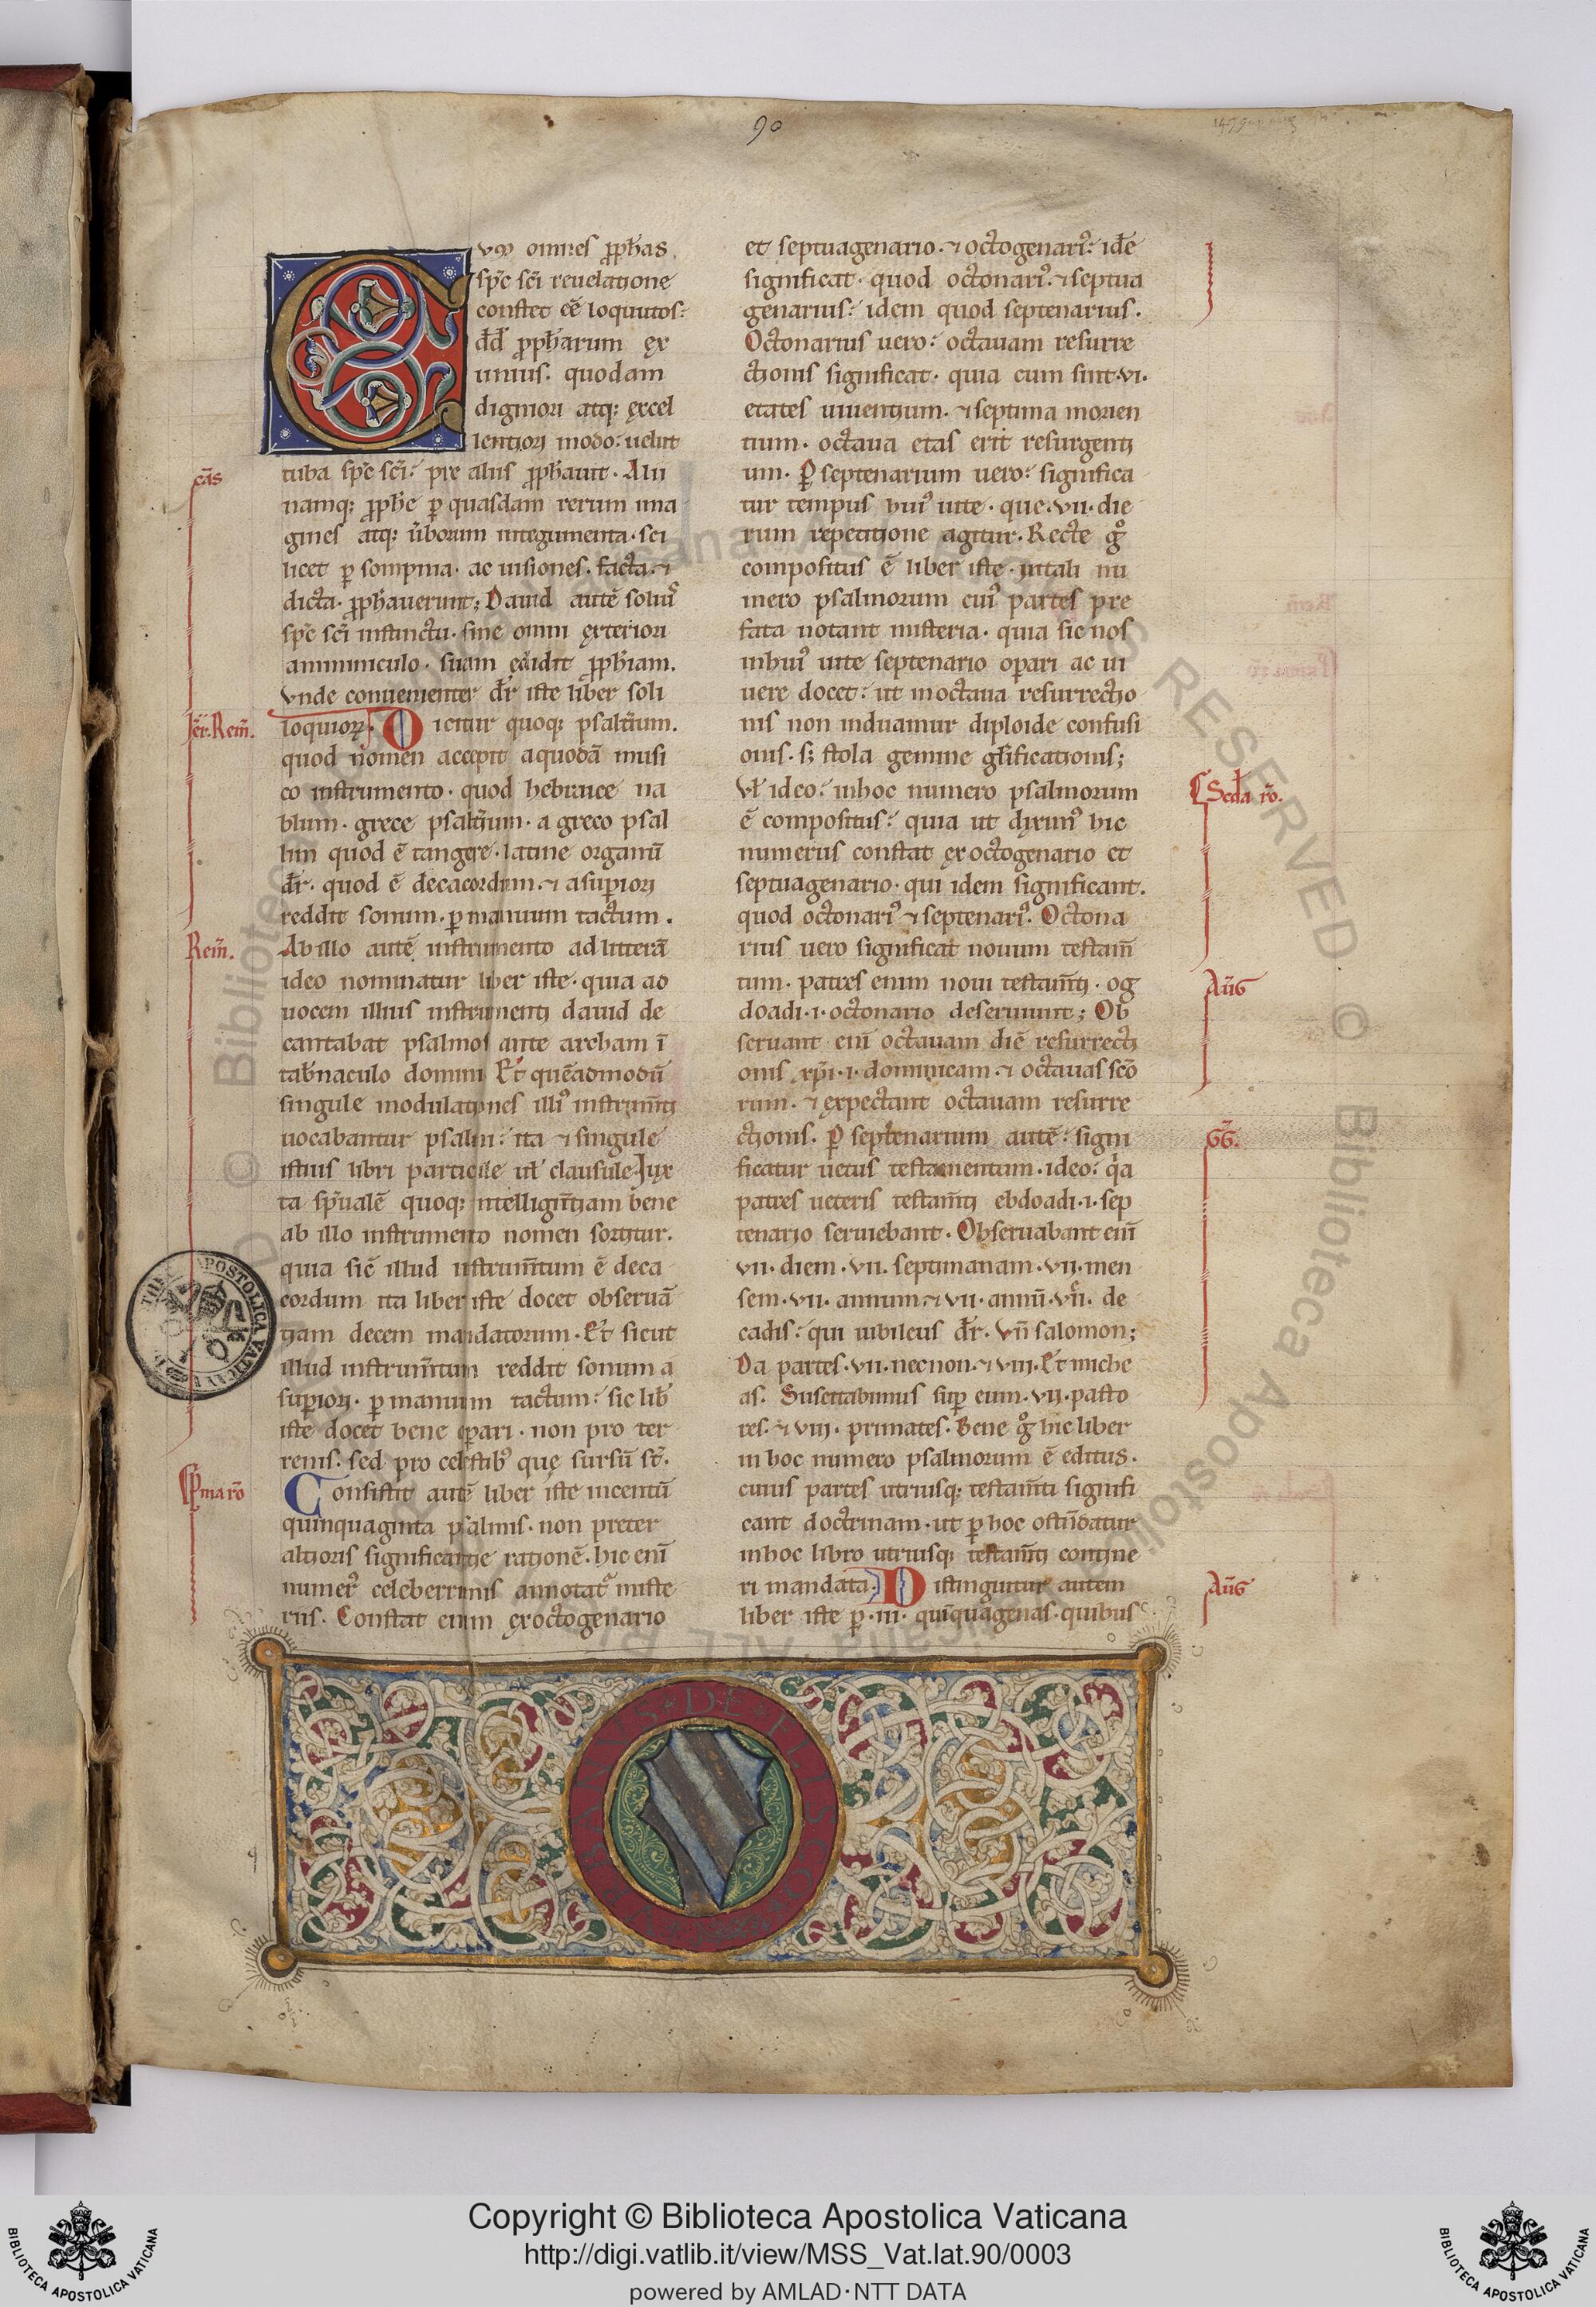 90
vm omnes ꝓph̄as
sp̄c sc̄i reuelatione
constet eē loquutos:
dd̄ ꝓph̄arum ex
imius. quodam
digniori atq; excel
lentiori modo: uelut
tuba sp̄c sc̄i: pre aliis ꝓph̄auit. Alii
namq; ꝓph̄e ꝑ quasdam rerum ima
gines atq; ūborum integumenta. sci
licet ꝑ sompnia. ac uisiones. facta. ⁊
dicta. ꝓph̄auerunt; Dauid autē soliuſ
sp̄c sc̄i instinctu. sine omni exteriori
amminiculo. suam edidit ꝓph̄iam.
vnde conuenienter dr̄ iste liber soli
loquioꝝ. Dicitur quoq; psalt̄ium.
quod nomen accepit aquodā musi
co instrumento. quod hebraice na
blum. grece psalt̄ium. a greco psal
lin quod ē tangere. latine organū
dr̄. quod ē decacordum. ⁊ asuꝑiori
reddit sonum. ꝑ manuum tactum.
Ab illo autē instrumento ad litterā
ideo nominatur liber iste. quia ad
uocem illius instrumenti dauid de
cantabat psalmos ante archam ī
tab̄naculo domini Et quēadmodū
singule modulationes illi' instrum̄ti
uocabantur psalmi: ita ⁊ singule
istius libri particule ul' clausule Iux
ta sp̄ualē quoq; intellign̄tiam bene
ab illo instrumento nomen sortitur.
quia sic̄ illud instrum̄tum ē deca
cordum ita liber iste docet obseruā
tiam decem mandatorum. Et sicut
illud instrum̄tum reddit sonum a
suꝑiori. ꝑ manuum tactum: sic lib̄
iste docet bene oꝑari. non pro ter
renis. sed pro celestib' que sursū st̄.
Consistit autē liber iste incentū
quinquaginta psalmis. non preter
altioris significatione rationē. hic enī
numer' celeberrimis annotat' miste
riis. Constat enim exoctogenario
et septuagenario. ⁊ octogenari': idē
significat. quod octonari'. ⁊ septua
genarius: idem quod septenarius.
Octonarius uero: octauam resurre
ctionis significat. quia cum sint. vi.
etates uiuentium. ⁊ septima morien
tium. octaua etas erit resurgenti
um. ꝑ septenarium uero: significa
tur tempus hui' uite. que. vii. die
rum repetitione agitur. Recte g°
compositus ē liber iste. intali nu
mero psalmorum cui' partes pre
fata notant misteria. quia sic nos
inhui' uite septenario oꝑari ac ui
uere docet: ut inoctaua resurrectio
nis non induamur diploide confusi
onis. s; stola gemine gl̄ificationis;
Vl' ideo: inhoc numero psalmorum
ē compositus: quia ut dixim' hic
numerus constat exoctogenario et
septuagenario. qui idem significant.
quod octonari' ⁊ septenari'. Octona
rius uero significat nouum testam̄
tum. patres enim noui testam̄ti. og
doadi. i. octonario deseruiunt; Ob
seruant enī octauam diē resurrecti
onis xp̄i. i. dominicam. ⁊ octauas scō
rum. ⁊ expectant octauam resurre
ctionis. ꝑ septenarium autē: signi
ficatur uetus testamentum. ideo: qa
patres ueteris testam̄ti ebdoadi. i. sep
tenario seruiebant. Obseruabant enī
vii. diem. vii. septimanam. vii. men
sem. vii. annum ⁊ vii. annū. vii. de
cadis: qui iubileus dr̄. Vn̄ salomon;
Da partes. vii. necnon. ⁊ viii. Et miche
as. Suscitabimus suꝑ eum. vii. pasto
res. ⁊ viii. primates. Bene g° hic liber
in hoc numero psalmorum ē editus.
cuius partes utriusq; testam̄ti signifi
cant doctrinam. ut ꝑ hoc ostn̄datur
inhoc libro utriusq; testam̄ti contine
ri mandata. Distinguitur autem
liber iste ꝑ. iii. quīquagenas. quibus
cās
Jer̄. Rem̄.
Rem̄.
ꝑma rō
Scd̄a rō.
Aūg
GG.
Aūg
VRBANVS DE FLISCO
Copyright © Biblioteca Apostolica Vaticana
http://digi.vatlib.it/view/MSS_Vat.lat.90/0003
powered by AMLAD·NTT DATA
BIBLIOTECA APOSTOLICA VATICANA
BIBLIOTECA APOSTOLICA VATICANA